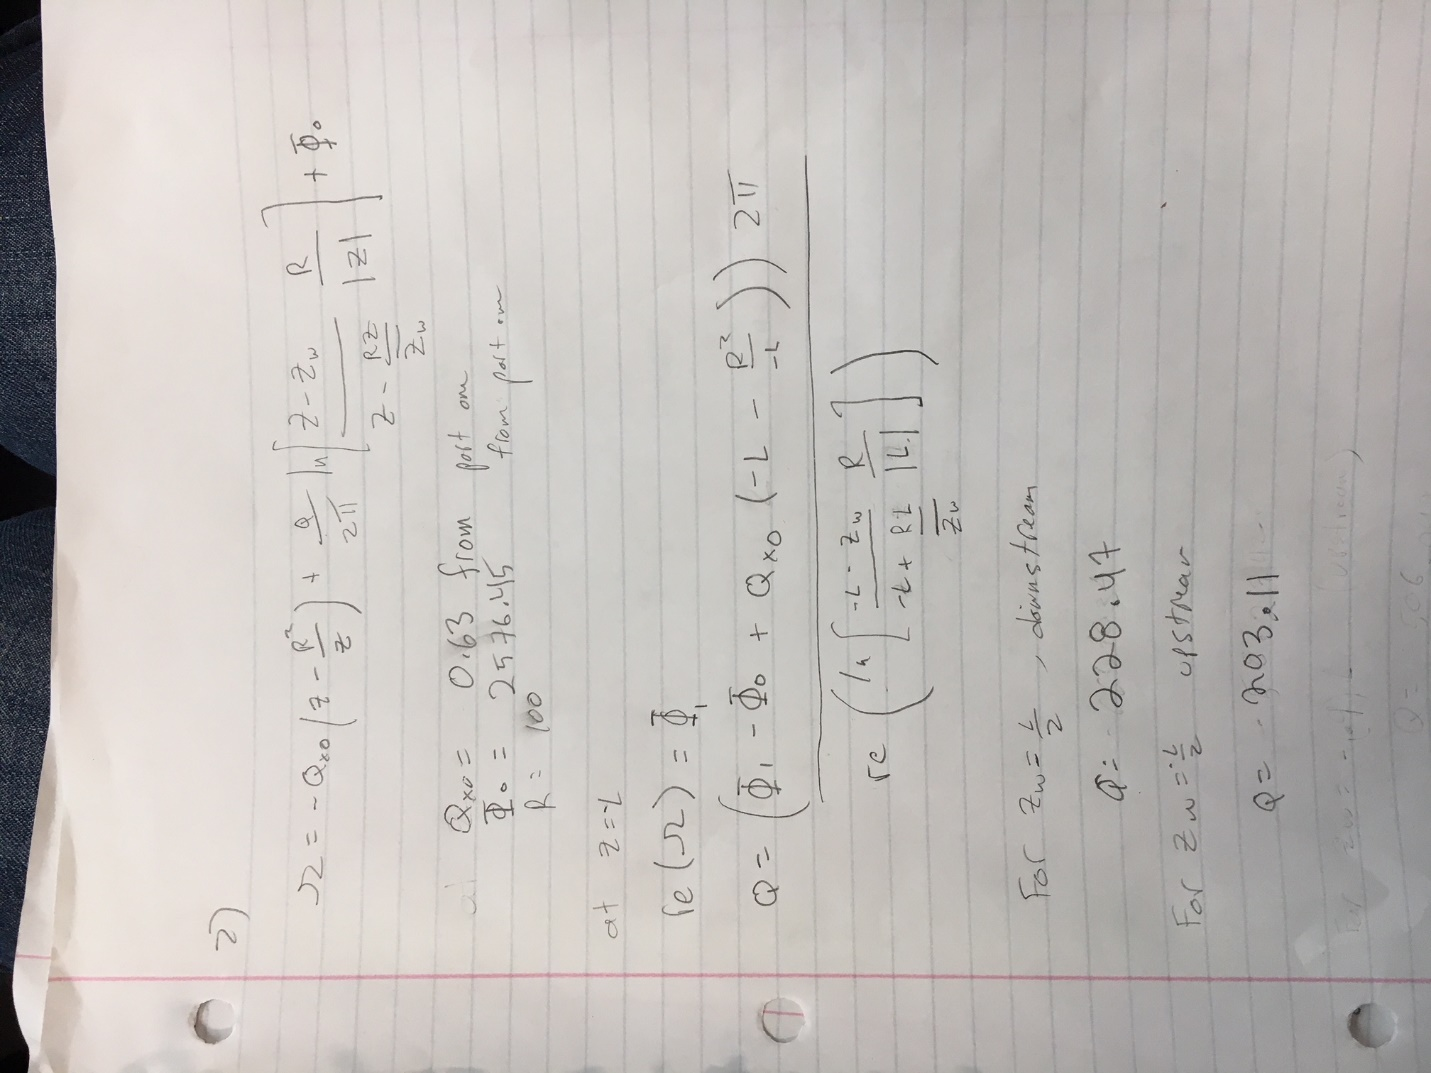 2)
Ω = -Qx0 (z - R²/z) + Q/2π ln [ (z - zw)/(z - RZ/z̄w) R/|z| ] + Φ0
Qx0 = 0.63 from part one
Φ0 = 2576.45 from part one
R = 100
at z = -L
re(Ω) = Φ1
Q = (Φ1 - Φ0 + Qx0 (-L - R²/-L)) 2π
re ( ln [ (-L - zw)/(-L + RL/z̄w) R/|L| ] )
For zw = L/2 , downstream
Q = 228.47
For zw = -L/2 upstream
Q = 293.11